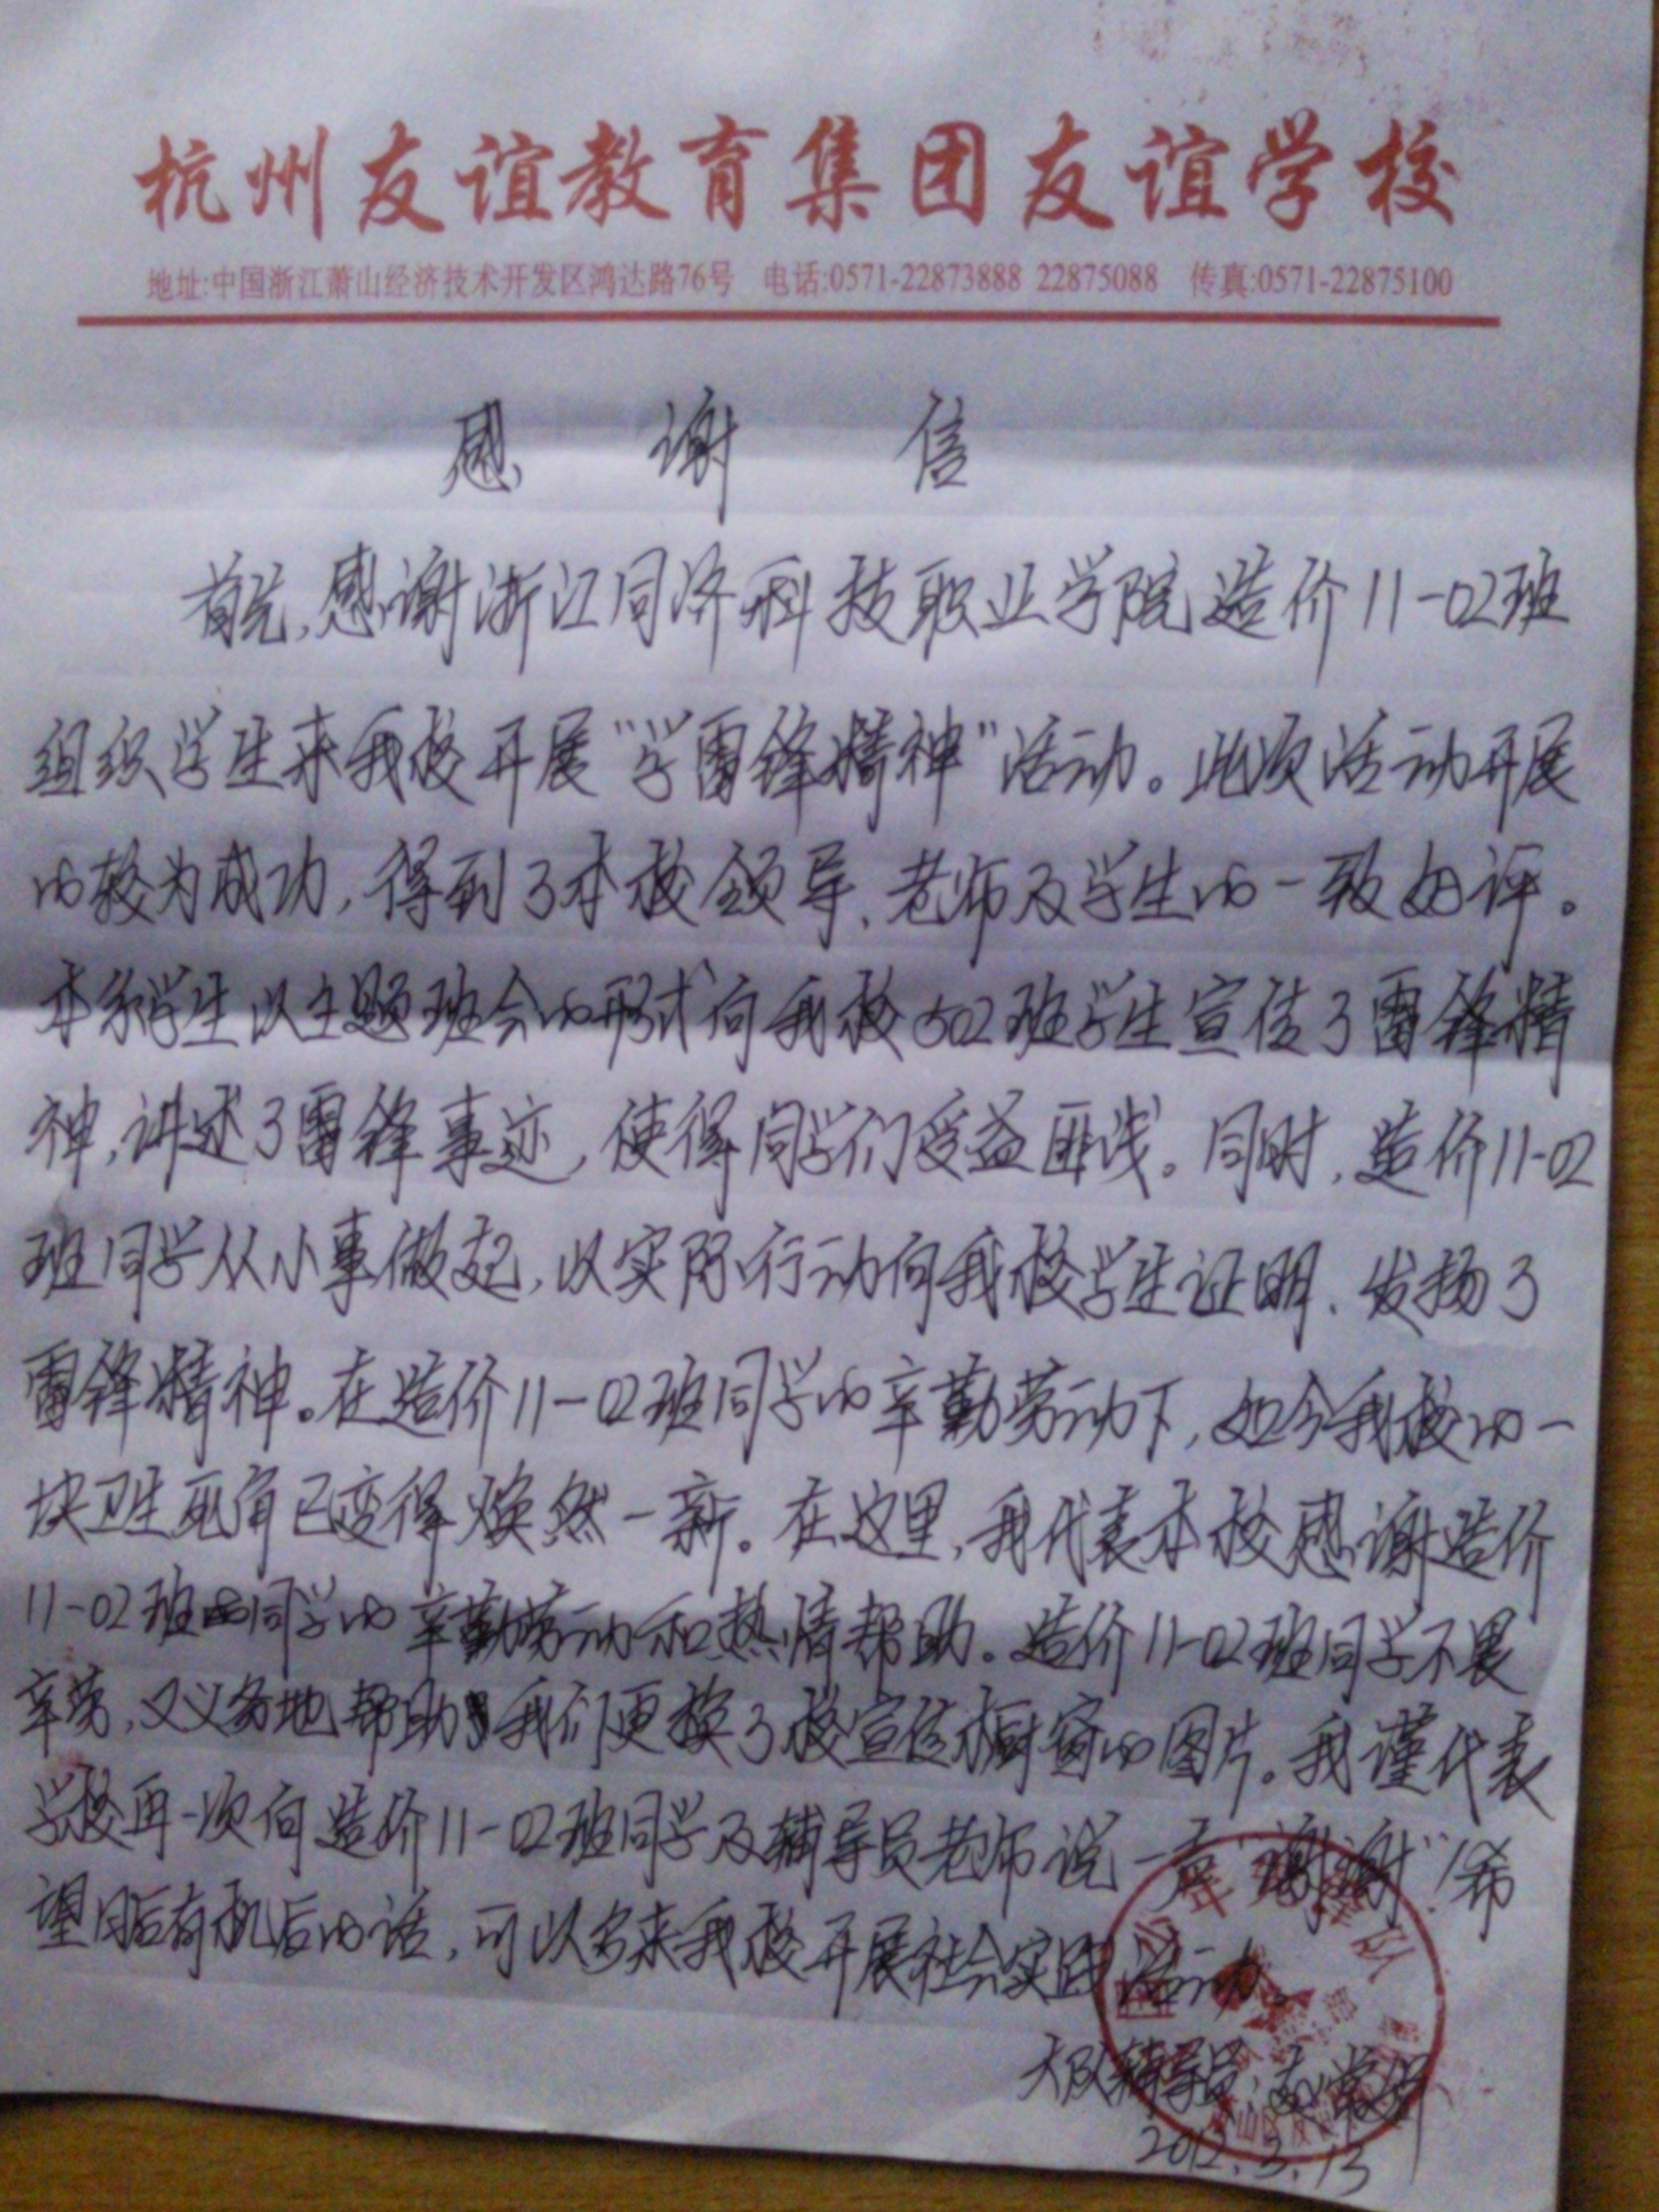 杭州友谊教育集团友谊学校
地址:中国浙江萧山经济技术开发区鸿达路76号 电话:0571-22873888 22875088 传真:0571-22875100
感谢信
首先,感谢浙江同济科技职业学院造价11-02班
组织学生来我校开展“学雷锋精神”活动。此次活动开展
的较为成功,得到了本校领导、老师及学生的一致好评。
本系学生以主题班会的形式向我校502班学生宣传了雷锋精
神,讲述了雷锋事迹,使得同学们受益匪浅。同时,造价11-02
班同学从小事做起,以实际行动向我校学生证明、发扬了
雷锋精神。在造价11-02班同学的辛勤劳动下,如今我校的一
块卫生死角已变得焕然一新。在这里,我代表本校感谢造价
11-02班同学的辛勤劳动和热情帮助。造价11-02班同学不畏
辛劳,又义务地帮助我们更换了校宣传橱窗的图片。我谨代表
学校再一次向造价11-02班同学及辅导员老师说一声“谢谢”!希
望日后有机后的话,可以多来我校开展社会实践活动。
大队辅导员:
2012.3.13
中国少年先锋队